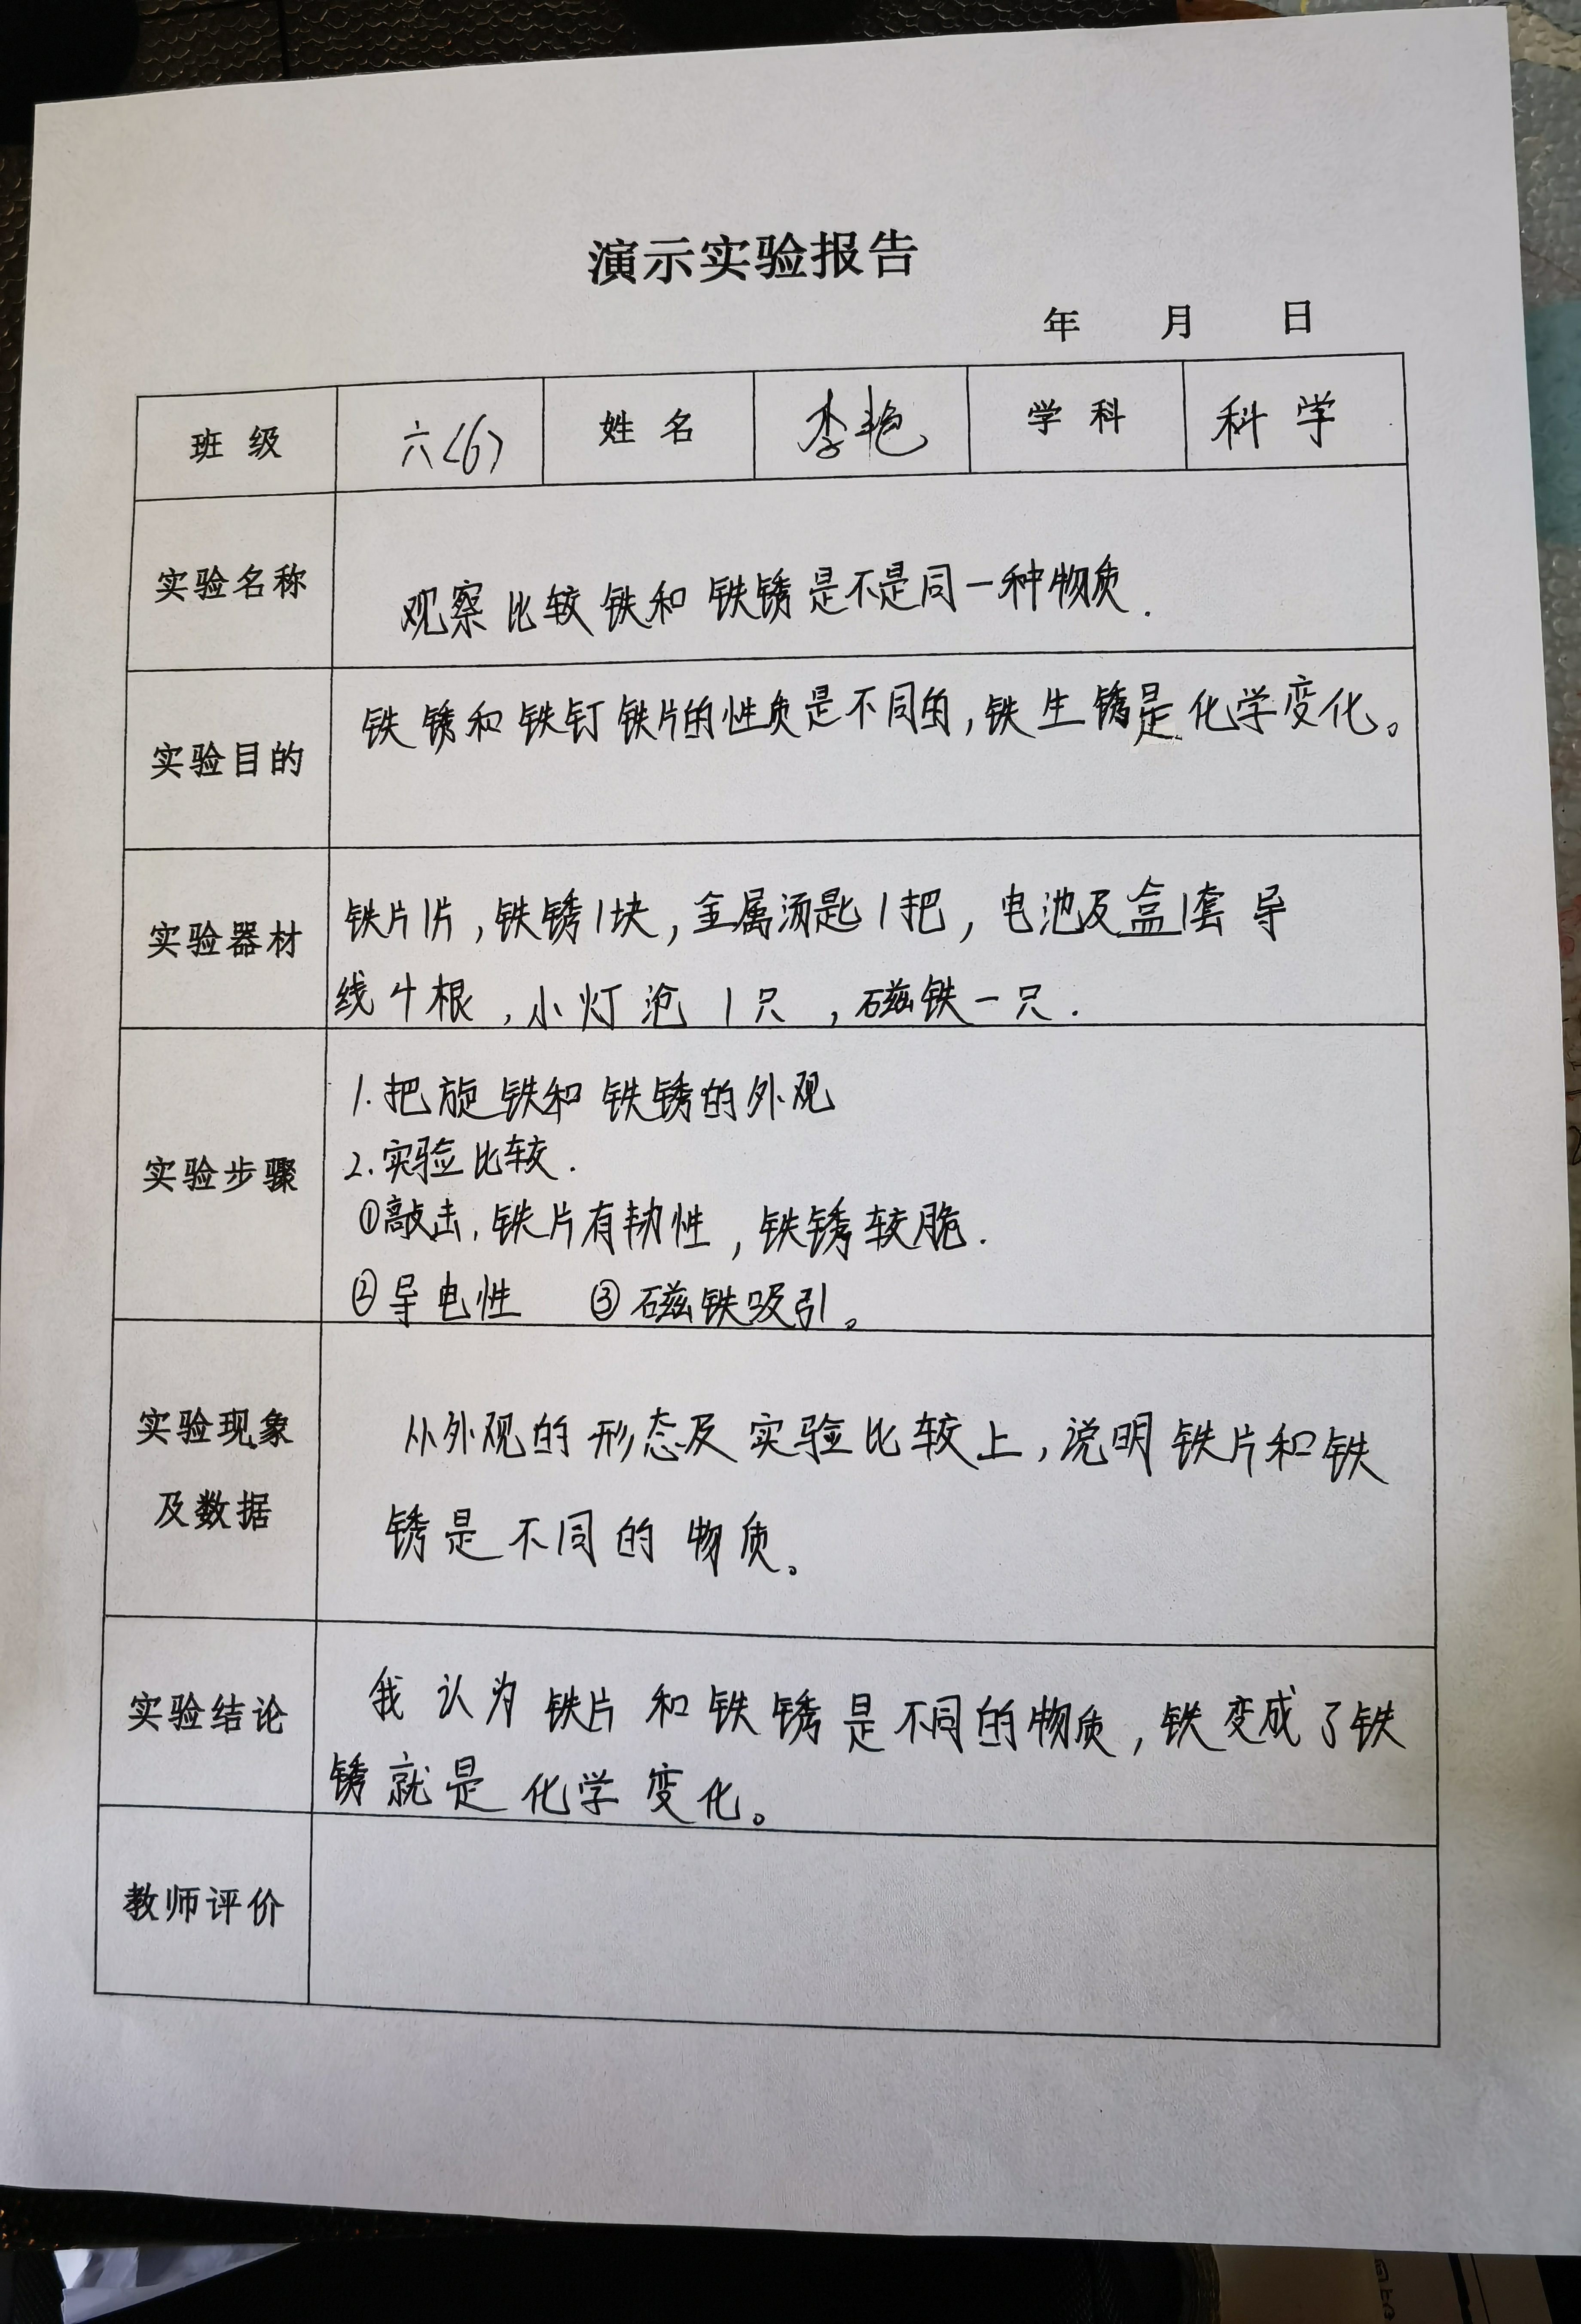 演示实验报告
年 月 日
班级 六(6) 姓名 李艳 学科 科学
实验名称 观察比较铁和铁锈是不是同一种物质.
实验目的 铁锈和铁钉铁片的性质是不同的,铁生锈是化学变化。
实验器材 铁片1片,铁锈1块,金属汤匙1把,电池及盒1套 导
线4根,小灯泡1只,磁铁一只.
实验步骤
1.把旋铁和铁锈的外观
2.实验比较.
①敲击,铁片有韧性,铁锈较脆.
②导电性 ③磁铁吸引。
实验现象
及数据
从外观的形态及实验比较上,说明铁片和铁
锈是不同的物质。
实验结论 我认为铁片和铁锈是不同的物质,铁变成了铁
锈就是化学变化。
教师评价